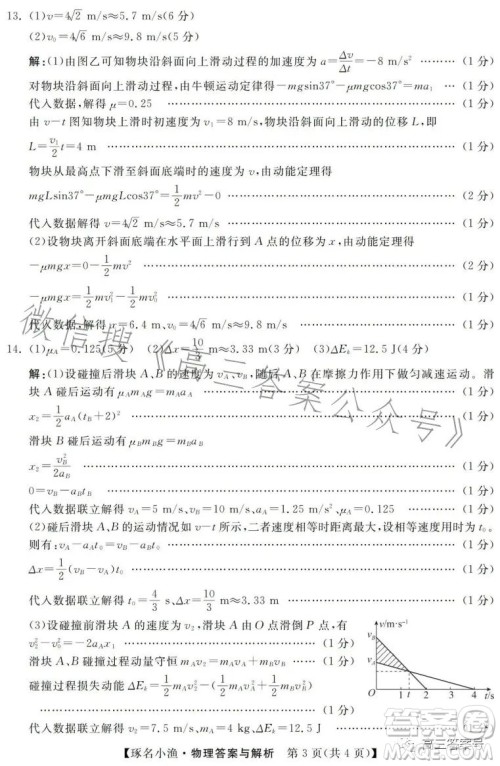 13. (1)v=4√2 m/s≈5.7 m/s(6分)
(2)v₀=4√6 m/s≈9.8 m/s(5分)
解:(1)由图乙可知物块沿斜面向上滑动过程的加速度为a=Δv/Δt=-8 m/s² ……(1分)
对物块沿斜面向上滑动过程,由牛顿运动定律有-mgsin37°-μmgcos37°=ma₁ ……(1分)
代入数据,解得μ=0.25 ……(1分)
由v-t图知物块上滑时初速度为v₁=8 m/s,物块沿斜面向上滑动的位移L,即
L=v₁/2 t=4 m ……(1分)
物块从最高点下滑至斜面底端时的速度为v,由动能定理得
mgLsin37°-μmgLcos37°=1/2 mv²-0 ……(2分)
代入数据解得v=4√2 m/s≈5.7 m/s ……(1分)
(2)设物块离开斜面底端在水平面上滑行到A点的位移为x,由动能定理得
-μmgx=0-1/2 mv² ……(2分)
-μmgx=1/2 mv₁²-1/2 mv₀² ……(2分)
代入数据,解得x=6.4 m,v₀=4√6 m/s≈9.8 m/s ……(1分)
14. (1)μA=0.125(5分) (2)Δx=10/3 m≈3.33 m(3分) (3)ΔEₖ=12.5 J(4分)
解:(1)设碰后滑块A、B的速度为vA、vB,随后A、B在摩擦力作用下做匀减速运动。滑
块A碰后运动有μAmAg=mAaA ……(1分)
x₂=1/2 aA(t₀+2)² ……(1分)
滑块B碰后运动有μBmBg=mBaB
x₂=vB²/2aB ……(1分)
0=vB-aBt₀ ……(1分)
代入数据解得vA=5 m/s,vB=10 m/s,aA=1.25 m/s²,μA=0.125 ……(1分)
(2)碰后滑块A、B的运动情况如v-t所示,二者速度相等时相距最大,设历时为t₀。
则有:vA-aAt₀=vB-aBt₀ ……(1分)
Δx=1/2(vB-vA)t₀ ……(1分)
代入数据联立解得t₀=4/3 s、Δx=10/3 m≈3.33 m ……(1分)
(3)设碰撞前滑块A的速度为v₂,滑块A由O点滑倒P点,有
v₂²-v₀²=-2aAx₁ ……(1分)
滑块A、B碰撞过程动量守恒mAv₂=mAvA+mBvB ……(1分)
碰撞过程损失动能ΔEₖ=1/2 mAv₂²-1/2 mAvA²-1/2 mBvB² ……(1分)
代入数据联立解得v₂=7.5 m/s,ΔEₖ=12.5 J ……(1分)
v/m·s⁻¹
vB
vA
0 1 t 2 4 t/s
【琢名小渔·物理答案与解析 第3页(共4页)】
微信搜《高三答案公众号》
高三答案号